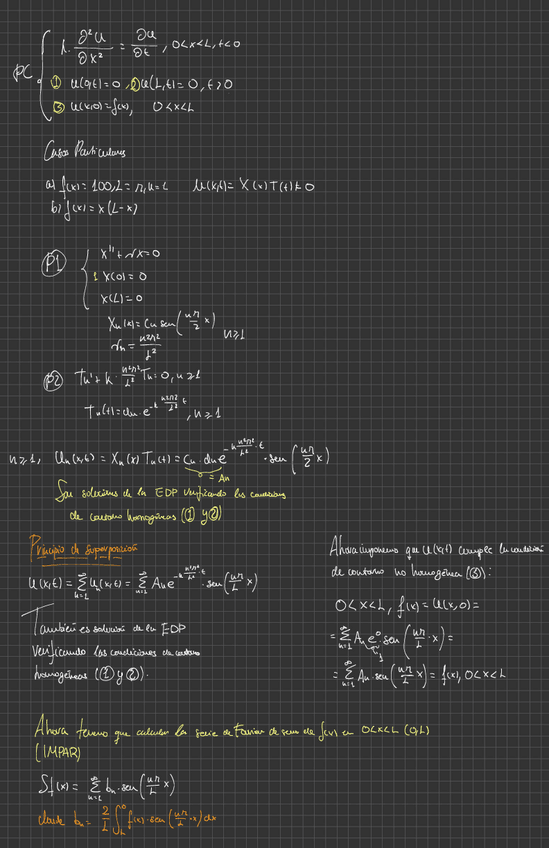 PC { k · ∂²u/∂x² = ∂u/∂t , 0<x<L, t<0
① u(0,t)=0 , ② u(L,t)=0 , t>0
③ u(x,0)=f(x), 0<x<L
Casos Particulares
a) f(x)=100, L=π, k=L u(x,t)= X(x)T(t)≠0
b) f(x)= x(L-x)
P1 { X''+λX=0
1 X(0)=0
X(L)=0
Xn(x)= Cn sen(nπ/2 x)
λn = n²π²/L² n≥1
P2 Tn'+k· n²π²/L² Tn=0, n≥1
Tn(t)= dn·e^(-k n²π²/L² t), n≥1
n≥1, Un(x,t) = Xn(x) Tn(t) = Cn·dn e^(-k n²π²/L² ·t) · sen(nπ/2 x)
= An
Son soluciones de la EDP verificando las condiciones
de contorno homogéneas (① y ②)
Principio de superposición
U(x,t) = ∑_{n=1}^∞ Un(x,t) = ∑_{n=1}^∞ An e^(-k n²π²/L² ·t) · sen(nπ/L x)
También es solución de la EDP
verificando las condiciones de contorno
homogéneas (① y ②).
Ahora imponemos que U(x,t) cumple la condición
de contorno no homogénea (③):
0<x<L, f(x)= U(x,0)=
= ∑_{n=1}^∞ An e⁰ sen(nπ/L · x) =
1
= ∑_{n=1}^∞ An · sen(nπ/L x) = f(x), 0<x<L
Ahora tenemos que calcular la serie de Fourier de senos de f(x) en 0<x<L (0,L)
(IMPAR)
Sf(x) = ∑_{n=1}^∞ bn · sen(nπ/L x)
donde bn = 2/L ∫ f(x) · sen(nπ/L · x) dx